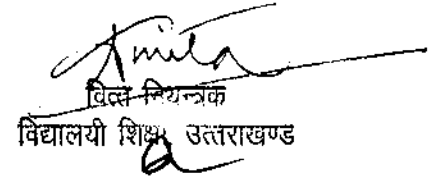 Amita
वित्त नियन्त्रक
विद्यालयी शिक्षा उत्तराखण्ड